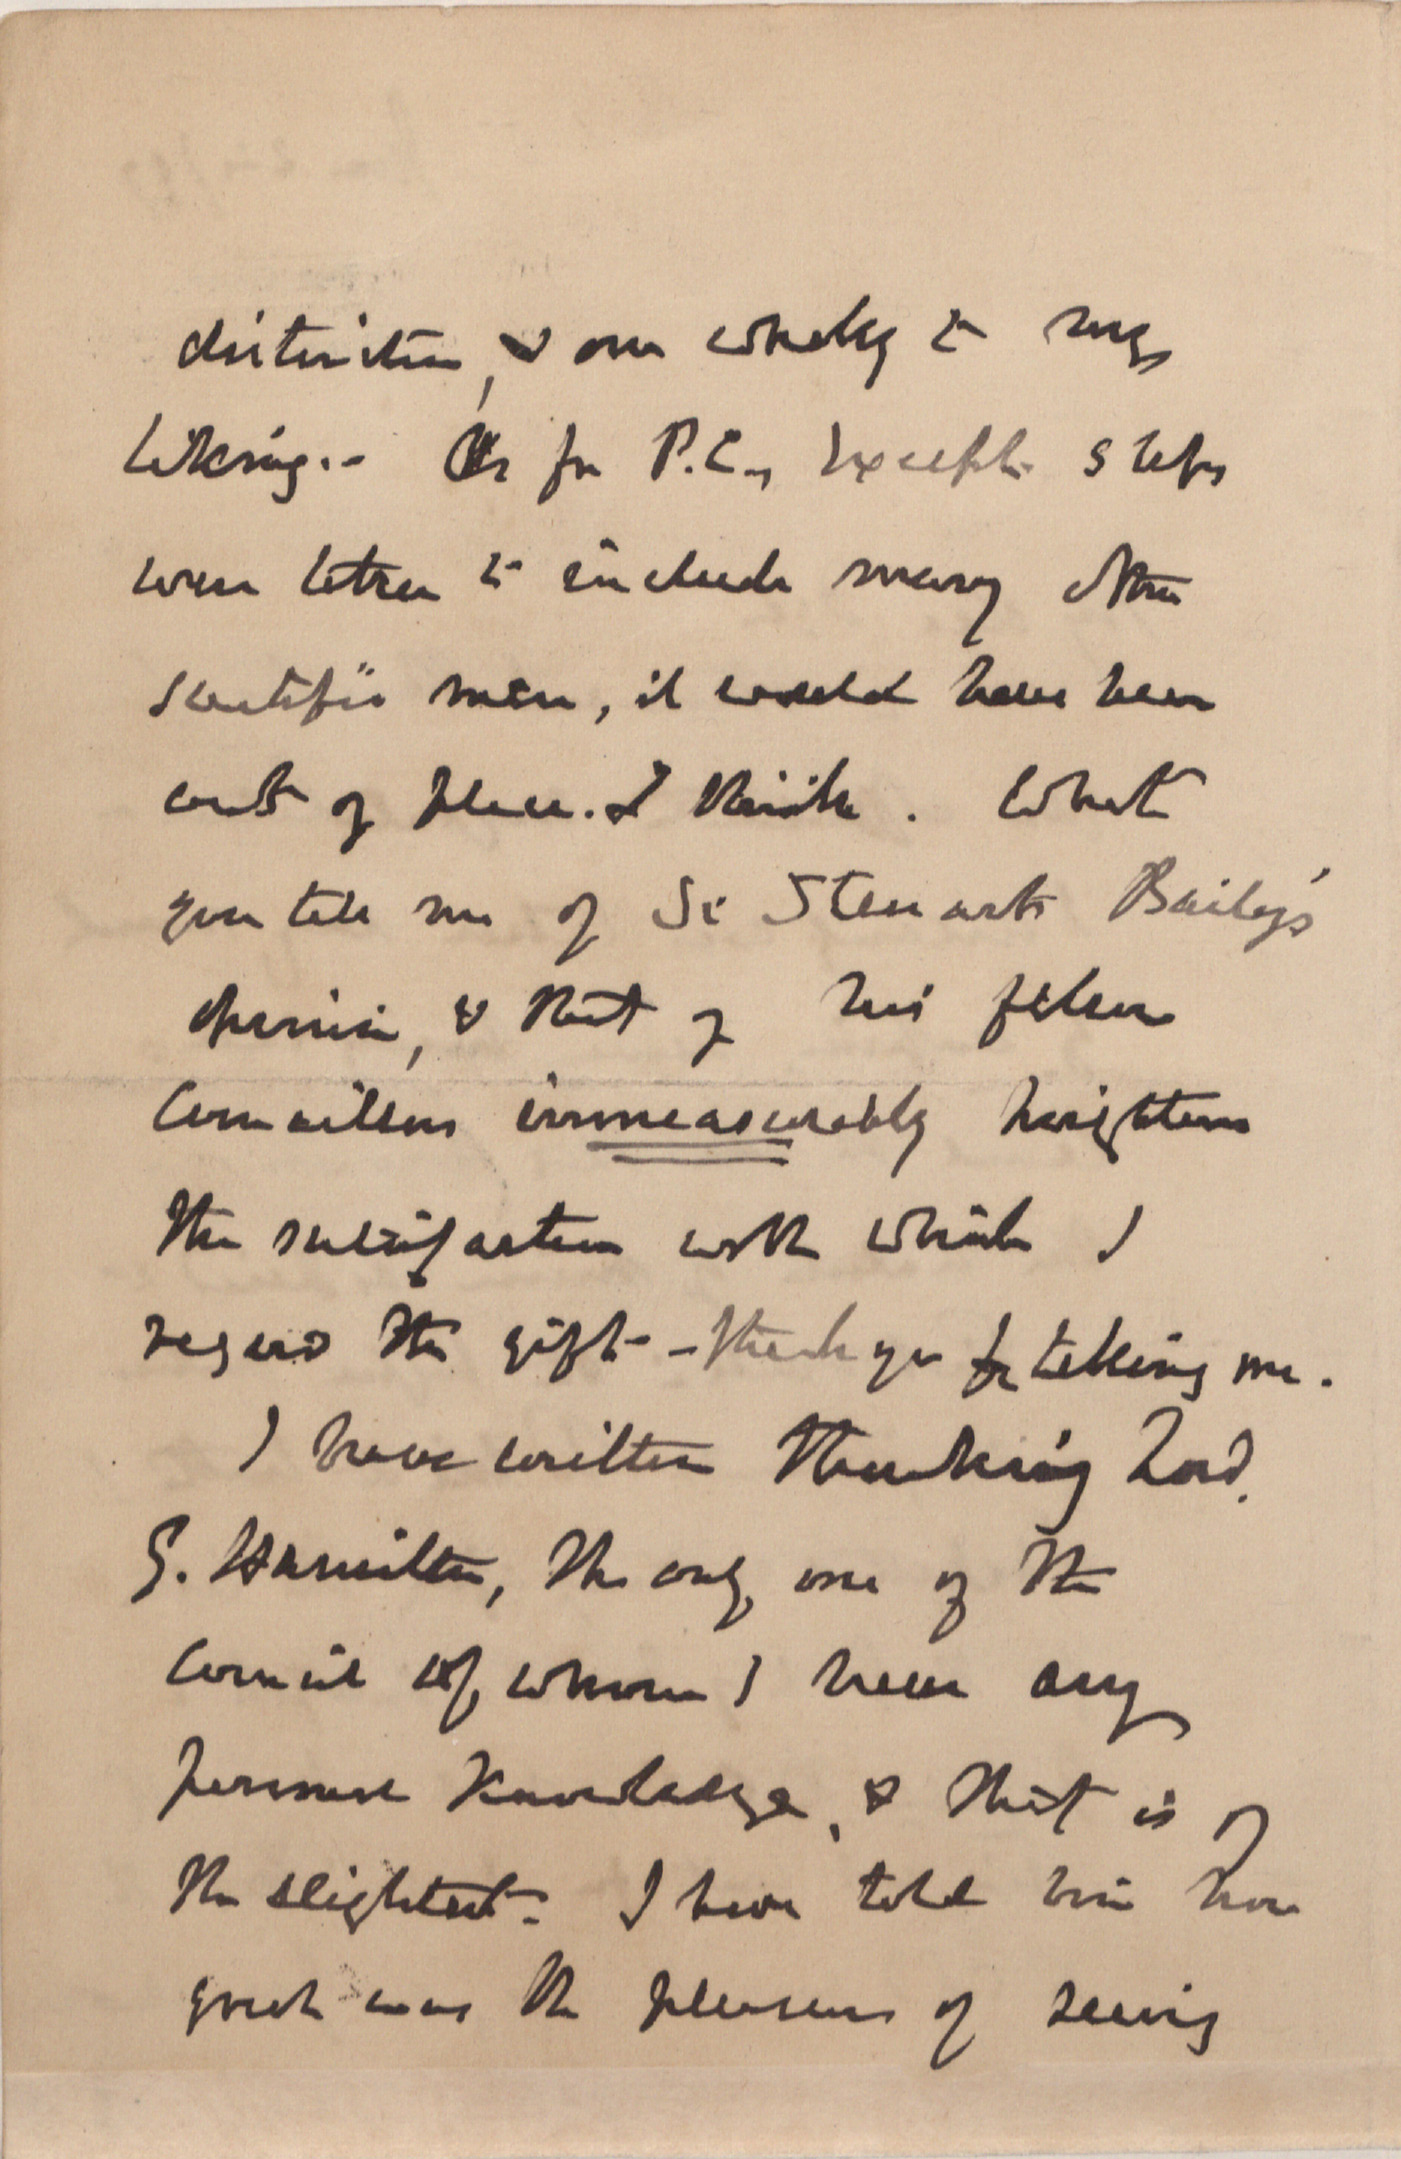 distinction, & one wholly to my
liking. - As for P.C., except steps
were taken to include many other
scientific men, it would have been
out of place. I think. What
you tell me of Sr Steuart Bailey's
opinion, & that of his fellow
Councillors immeasurably heightens
the satisfaction with which I
regard the gift - thank you for telling me.
I have written thanking Lord
G. Hamilton, the only one of the
Council of whom I have any
personal knowledge, & that is of
the slightest. I have told him how
great was the pleasure of seeing